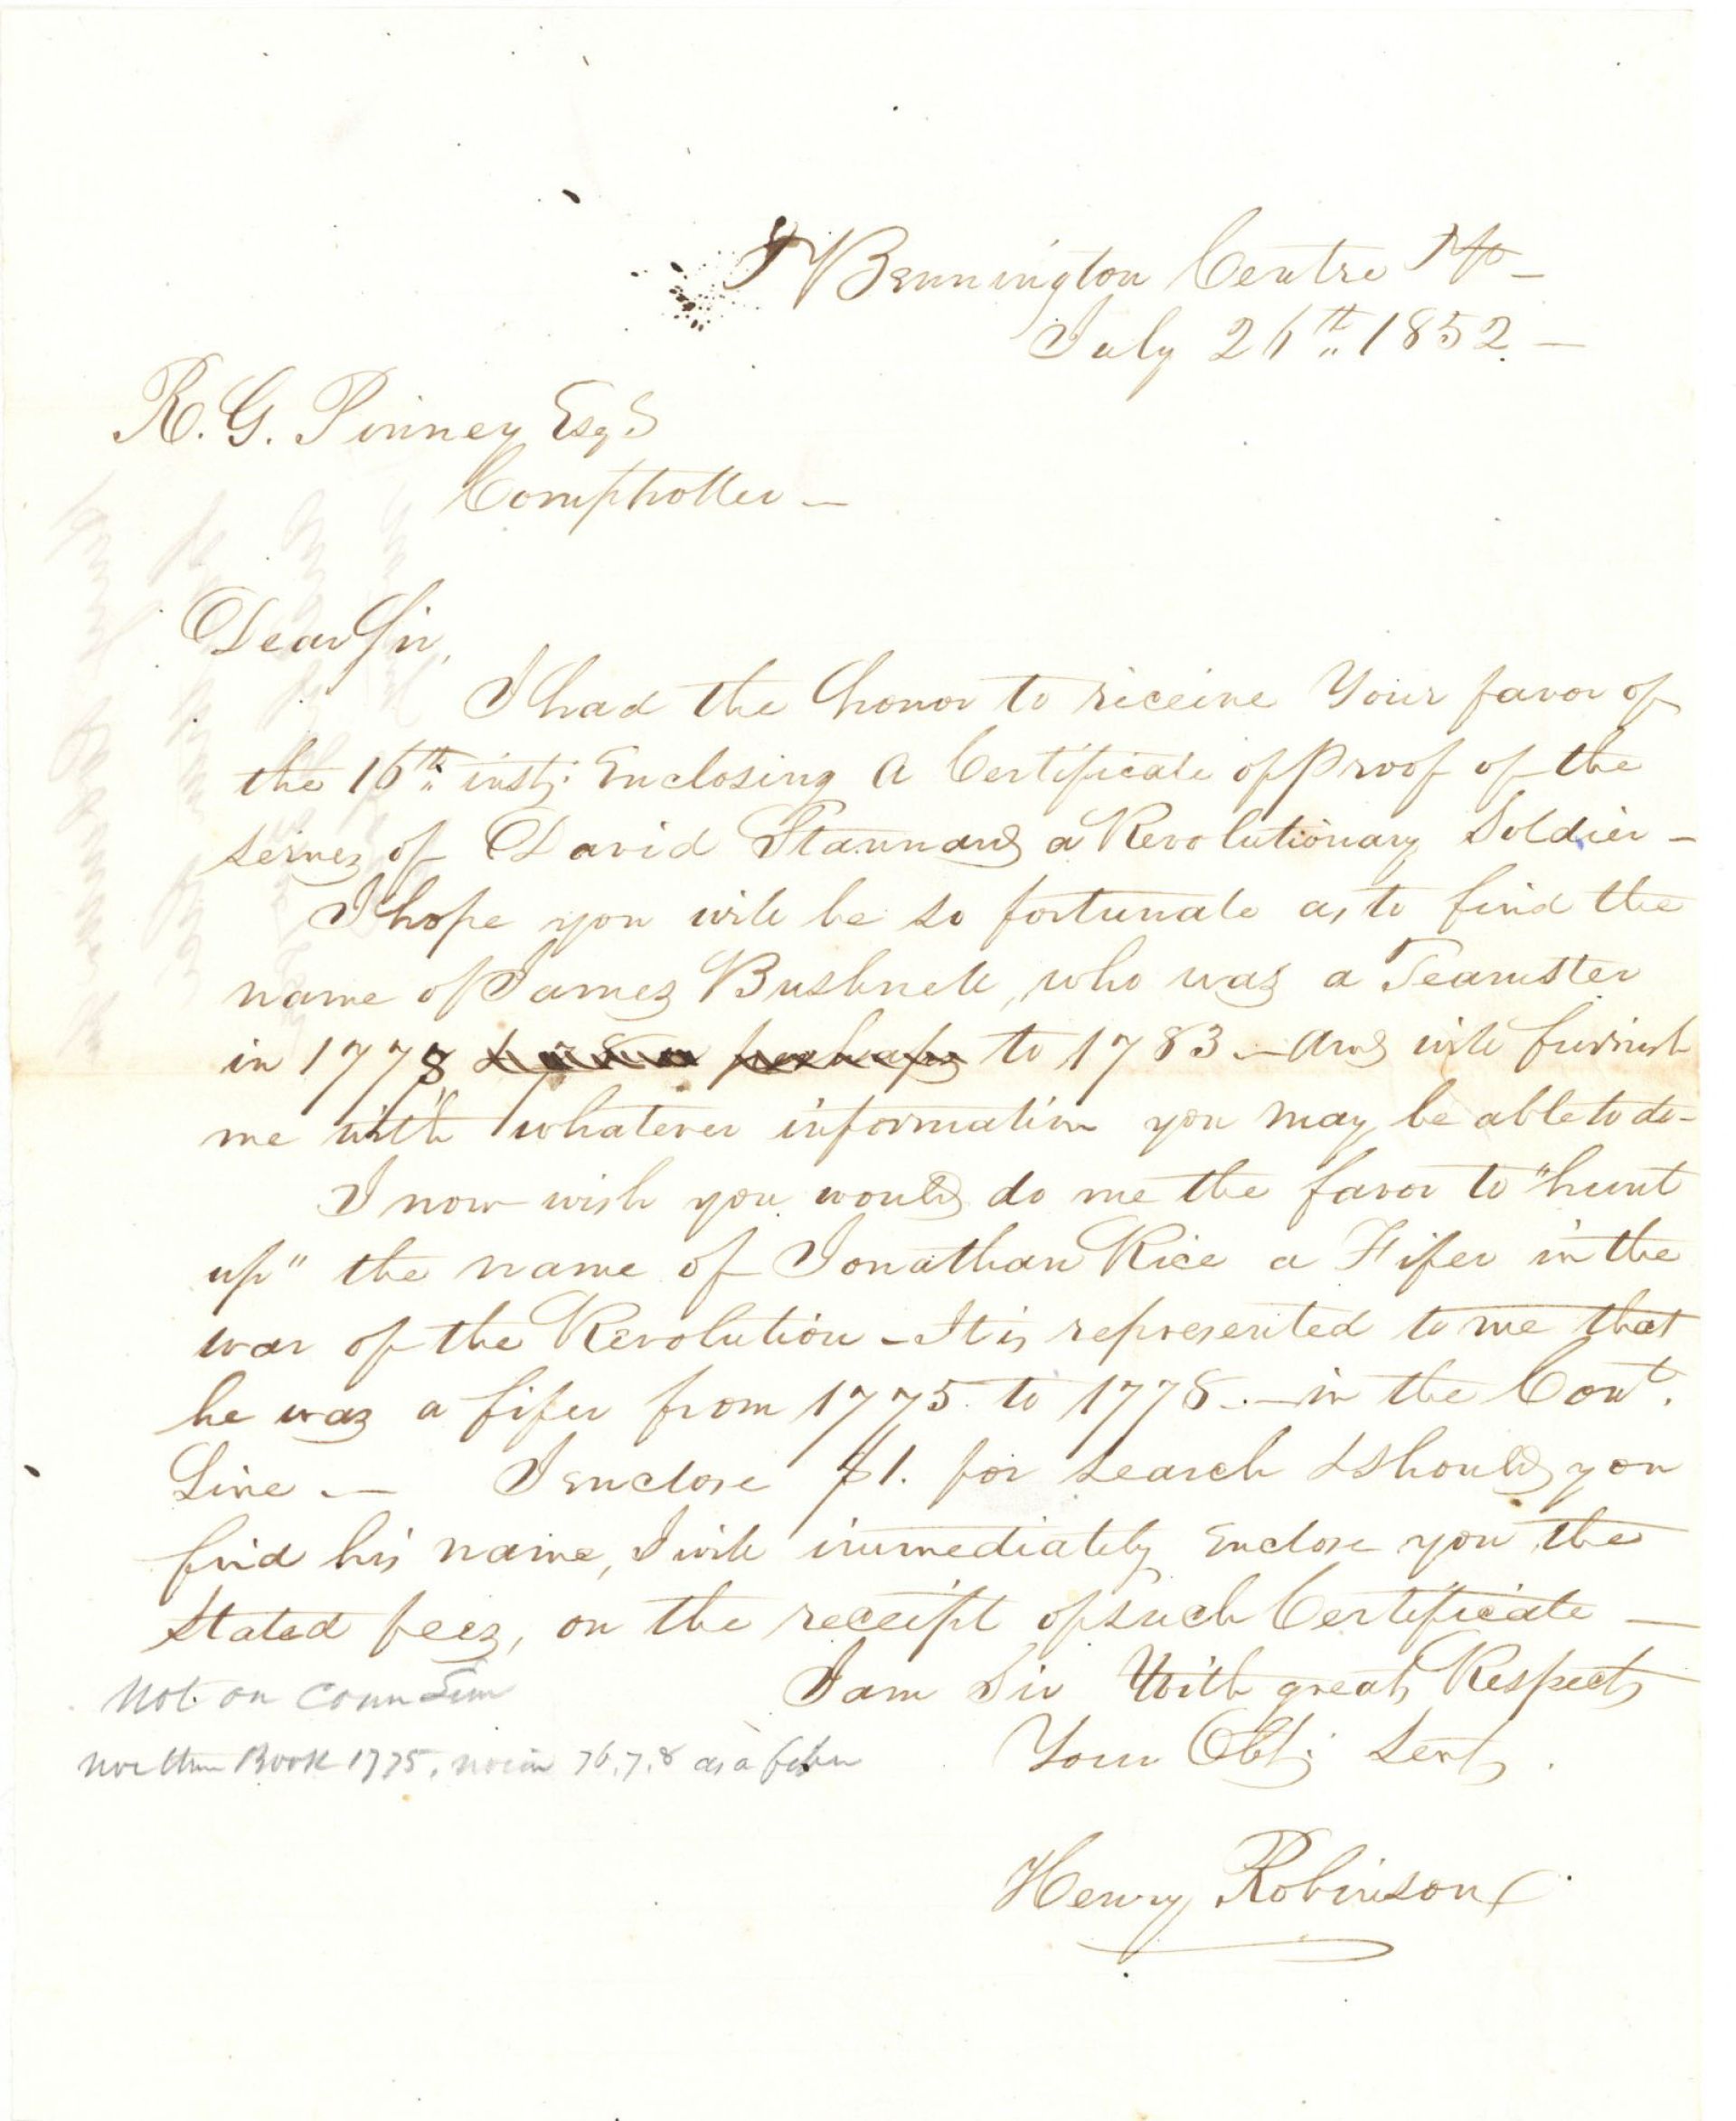 Bennington Centre Vt –
July 26th 1852 –
R. G. Pinney Esqr
Comptroller –
Dear Sir,
I had the honor to receive Your favor of
the 16th inst; Enclosing A Certificate of Proof of the
servics of David Stannard a Revolutionary Soldier –
I hope you will be so fortunate as to find the
name of James Bushnell, who was a Teamster
in 1778 perhaps to 1783 – And will furnish
me with whatever information you may be able to do –
I now wish you would do me the favor to "hunt
up" the name of Jonathan Rice a Fifer in the
war of the Revolution – It is represented to me that
he was a fifer from 1775 to 1778 – in the Cont.
Line – I enclose $1. for search & should you
find his name, I will immediately Enclose you the
stated fees, on the receipt of such Certificate –
I am Sir With great Respect
Your Obt; Servt.
Henry Robinson
Not on Conn Line
nor Book 1775, nor in 76, 7, 8 as a fifer